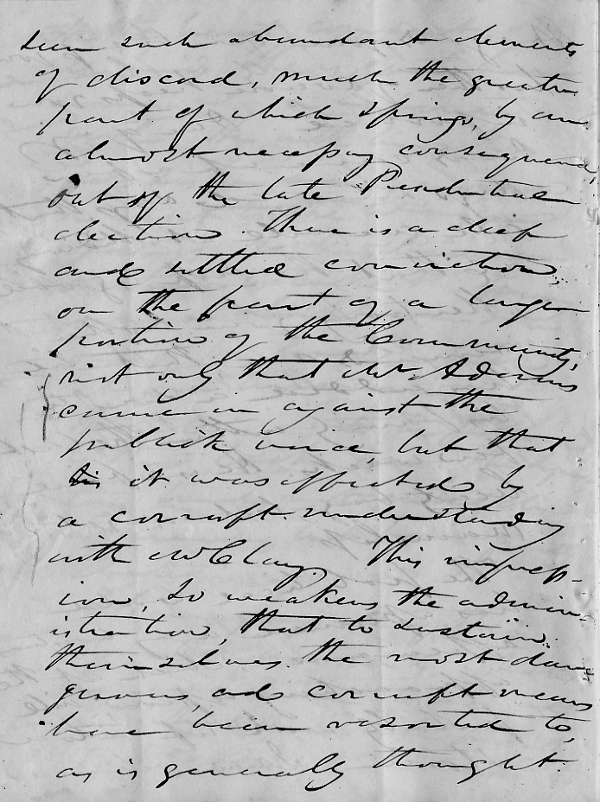 seen such abundant elements
of discord, much the greater
part of which springs, by an
almost necessary consequence,
out of the late Presidential
election. There is a deep
and settled conviction,
on the part of a large
portion of the Community,
not only that Mr. Adams
came in against the
publick voice, but that
it was effected by
a corrupt understanding
with Mr Clay. This impress-
ion, so weakens the admin-
istration, that to sustain
themselves the most dan
gerous, and corrupt means
have been resorted to,
as is generally thought.